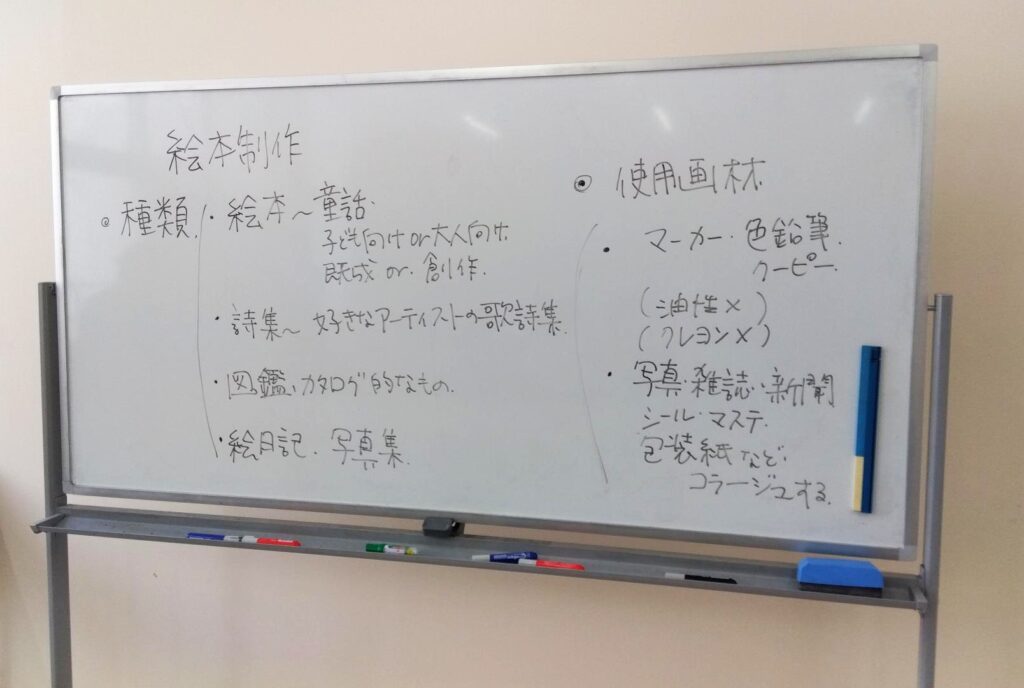 絵本制作
◎ 種類
・絵本～童話
子ども向け or 大人向け
既成 or 創作
・詩集～ 好きなアーティストの歌詩集
・図鑑、カタログ的なもの
・絵日記・写真集
◎ 使用画材
・マーカー・色鉛筆
クーピー
(油性×)
(クレヨン×)
・写真・雑誌・新聞
シール・マステ
包装紙など
コラージュする